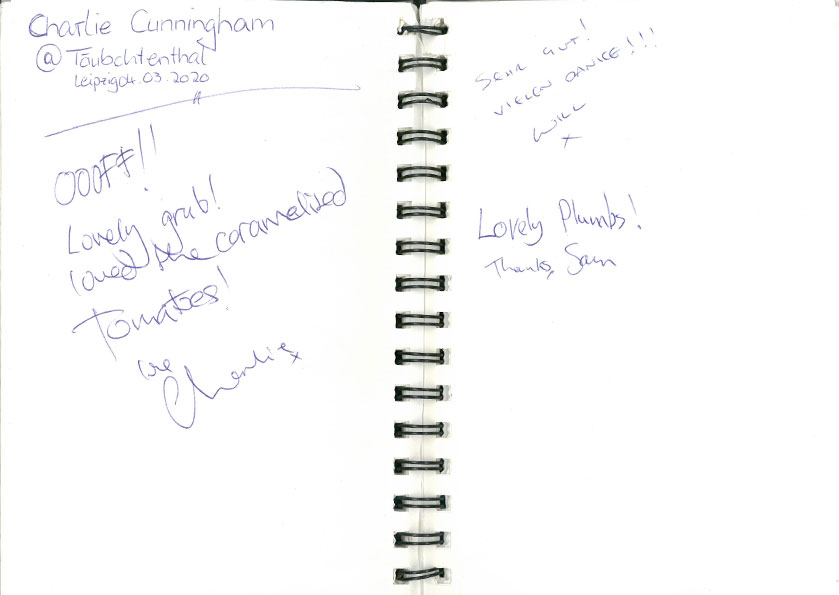 Charlie Cunningham
@ Täubchtenthal
Leipzig 04.03.2020
OOOFF!!
Lovely grub!
loved the caramelised
Tomatoes!
Charlie x
SEHR GUT!
VIELEN DANKE!!!
WILL
x
Lovely Plumbs!
Thanks, Sam